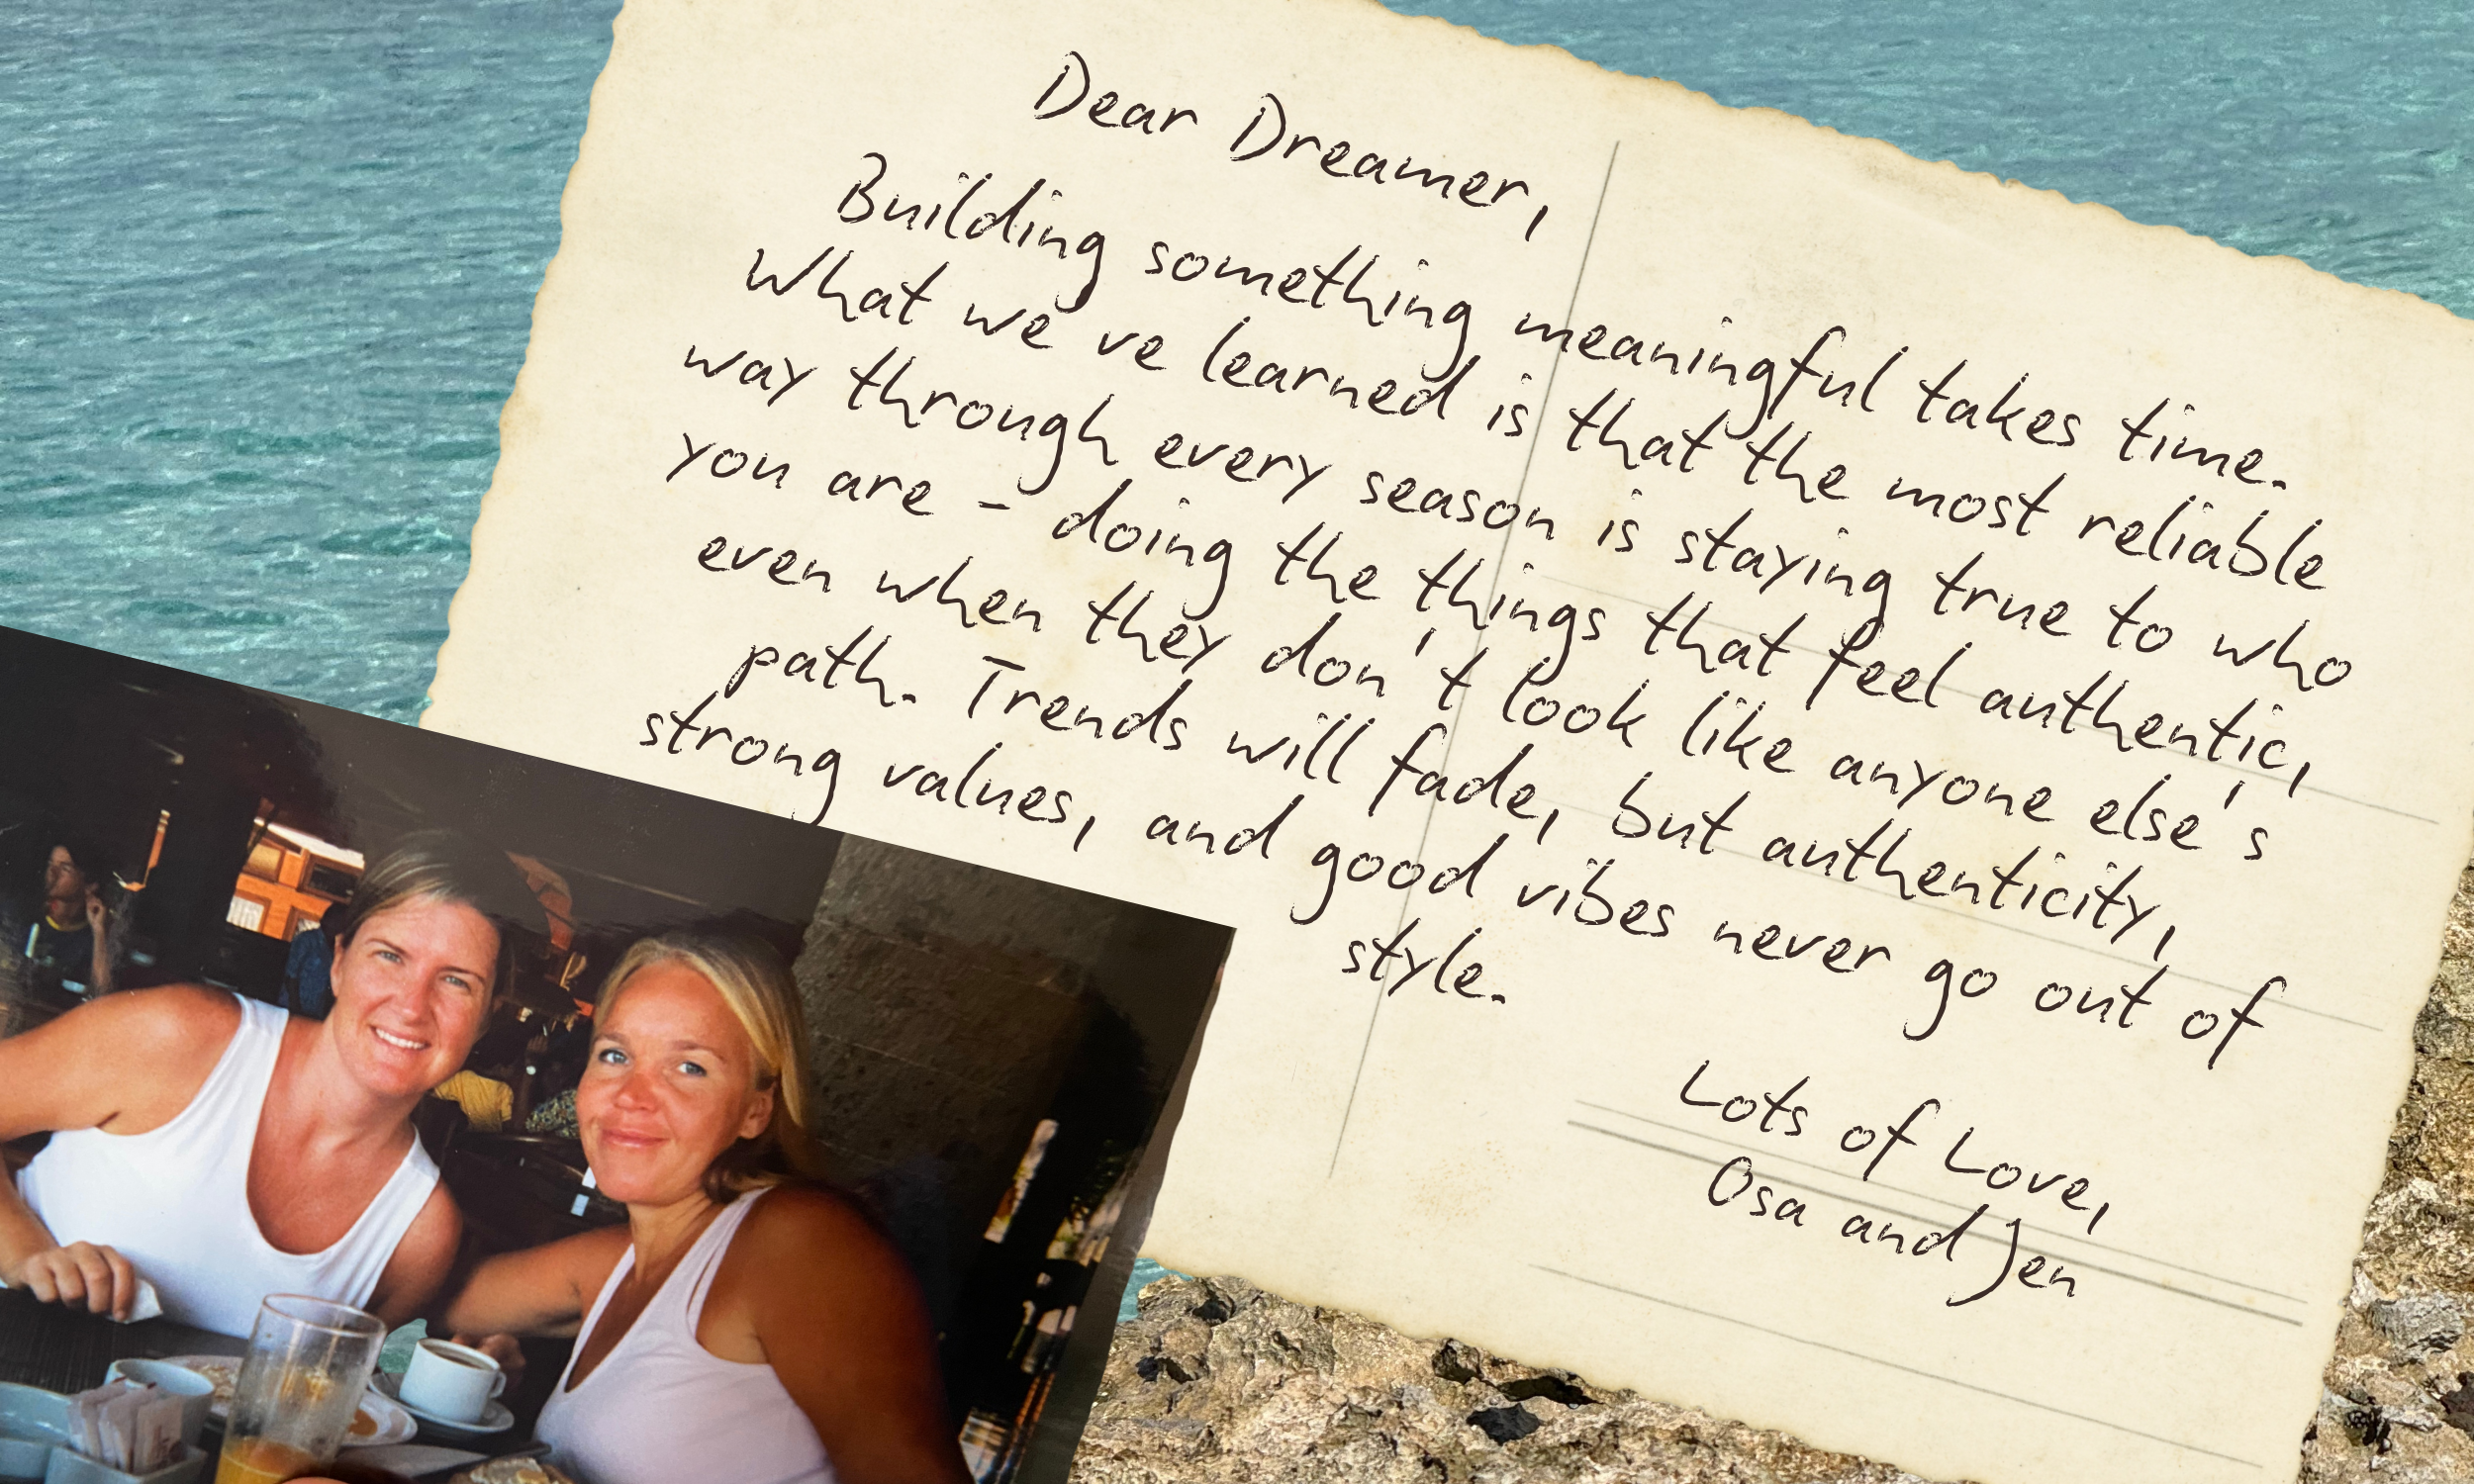 Dear Dreamer,
Building something meaningful takes time.
What we've learned is that the most reliable
way through every season is staying true to who
you are - doing the things that feel authentic,
even when they don't look like anyone else's
path. Trends will fade, but authenticity,
strong values, and good vibes never go out of
style.
Lots of Love,
Osa and Jen